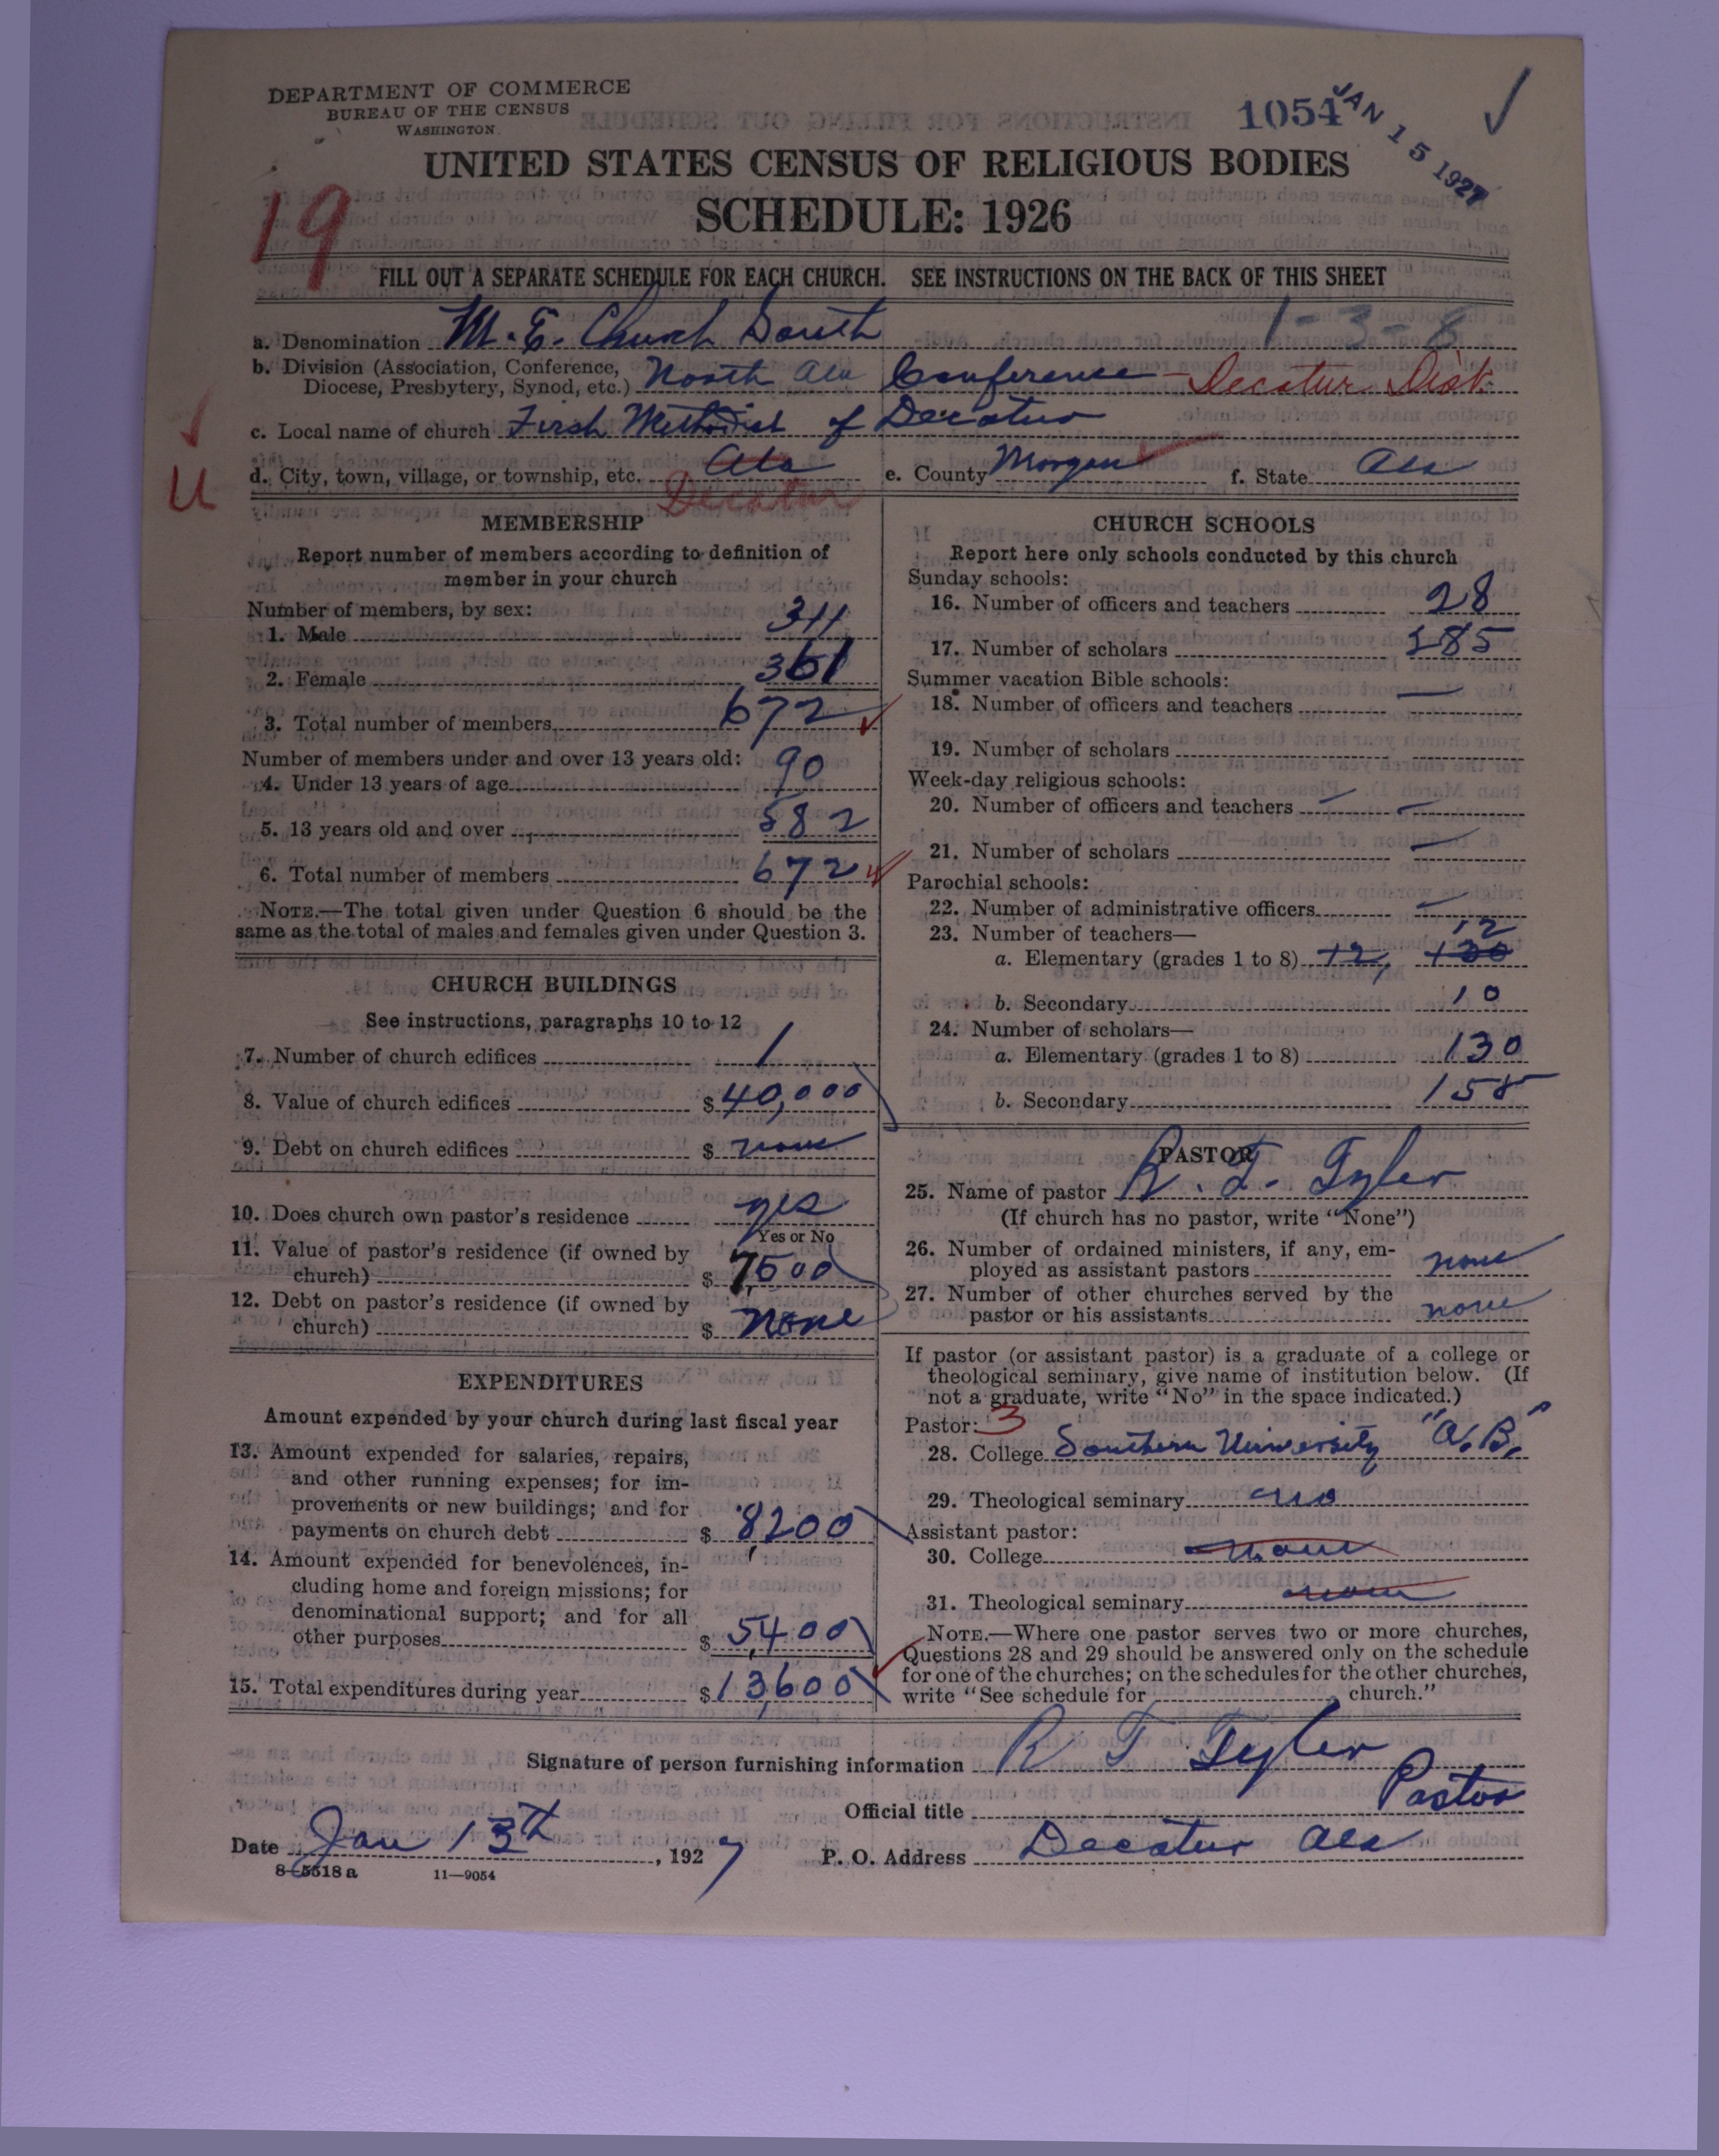 DEPARTMENT OF COMMERCE
BUREAU OF THE CENSUS
WASHINGTON
1054
JAN 15 1927
UNITED STATES CENSUS OF RELIGIOUS BODIES
SCHEDULE: 1926
19
FILL OUT A SEPARATE SCHEDULE FOR EACH CHURCH. SEE INSTRUCTIONS ON THE BACK OF THIS SHEET
1-3-8
a. Denomination M. E. Church South
b. Division (Association, Conference,
Diocese, Presbytery, Synod, etc.) North Ala Conference - Decatur Dist.
c. Local name of church First Methodist of Decatur
d. City, town, village, or township, etc. Ala e. County Morgan f. State Ala
U Decatur
MEMBERSHIP
Report number of members according to definition of
member in your church
Number of members, by sex:
1. Male 311
2. Female 361
3. Total number of members 672
Number of members under and over 13 years old:
4. Under 13 years of age 90
5. 13 years old and over 582
6. Total number of members 672
NOTE.—The total given under Question 6 should be the
same as the total of males and females given under Question 3.
CHURCH BUILDINGS
See instructions, paragraphs 10 to 12
7. Number of church edifices 1
8. Value of church edifices $40,000
9. Debt on church edifices $ none
10. Does church own pastor's residence yes
Yes or No
11. Value of pastor's residence (if owned by
church) $ 7,500
12. Debt on pastor's residence (if owned by
church) $ None
EXPENDITURES
Amount expended by your church during last fiscal year
13. Amount expended for salaries, repairs,
and other running expenses; for im-
provements or new buildings; and for
payments on church debt $ 8,200
14. Amount expended for benevolences, in-
cluding home and foreign missions; for
denominational support; and for all
other purposes $ 5,400
15. Total expenditures during year $13,600
CHURCH SCHOOLS
Report here only schools conducted by this church
Sunday schools:
16. Number of officers and teachers 28
17. Number of scholars 585
Summer vacation Bible schools:
18. Number of officers and teachers —
19. Number of scholars
Week-day religious schools:
20. Number of officers and teachers — —
21. Number of scholars —
Parochial schools:
22. Number of administrative officers —
23. Number of teachers— 12
a. Elementary (grades 1 to 8) 12, 130
b. Secondary 10
24. Number of scholars—
a. Elementary (grades 1 to 8) 130
b. Secondary 155
PASTOR
25. Name of pastor R. T. Tyler
(If church has no pastor, write "None")
26. Number of ordained ministers, if any, em-
ployed as assistant pastors none
27. Number of other churches served by the
pastor or his assistants none
If pastor (or assistant pastor) is a graduate of a college or
theological seminary, give name of institution below. (If
not a graduate, write "No" in the space indicated.)
Pastor: 3
28. College Southern University "A.B."
29. Theological seminary no
Assistant pastor:
30. College none
31. Theological seminary none
NOTE.—Where one pastor serves two or more churches,
Questions 28 and 29 should be answered only on the schedule
for one of the churches; on the schedules for the other churches,
write "See schedule for church."
Signature of person furnishing information R T Tyler
Official title Pastor
Date Jan 13th, 1927 P. O. Address Decatur Ala
8-5518 a 11—9054